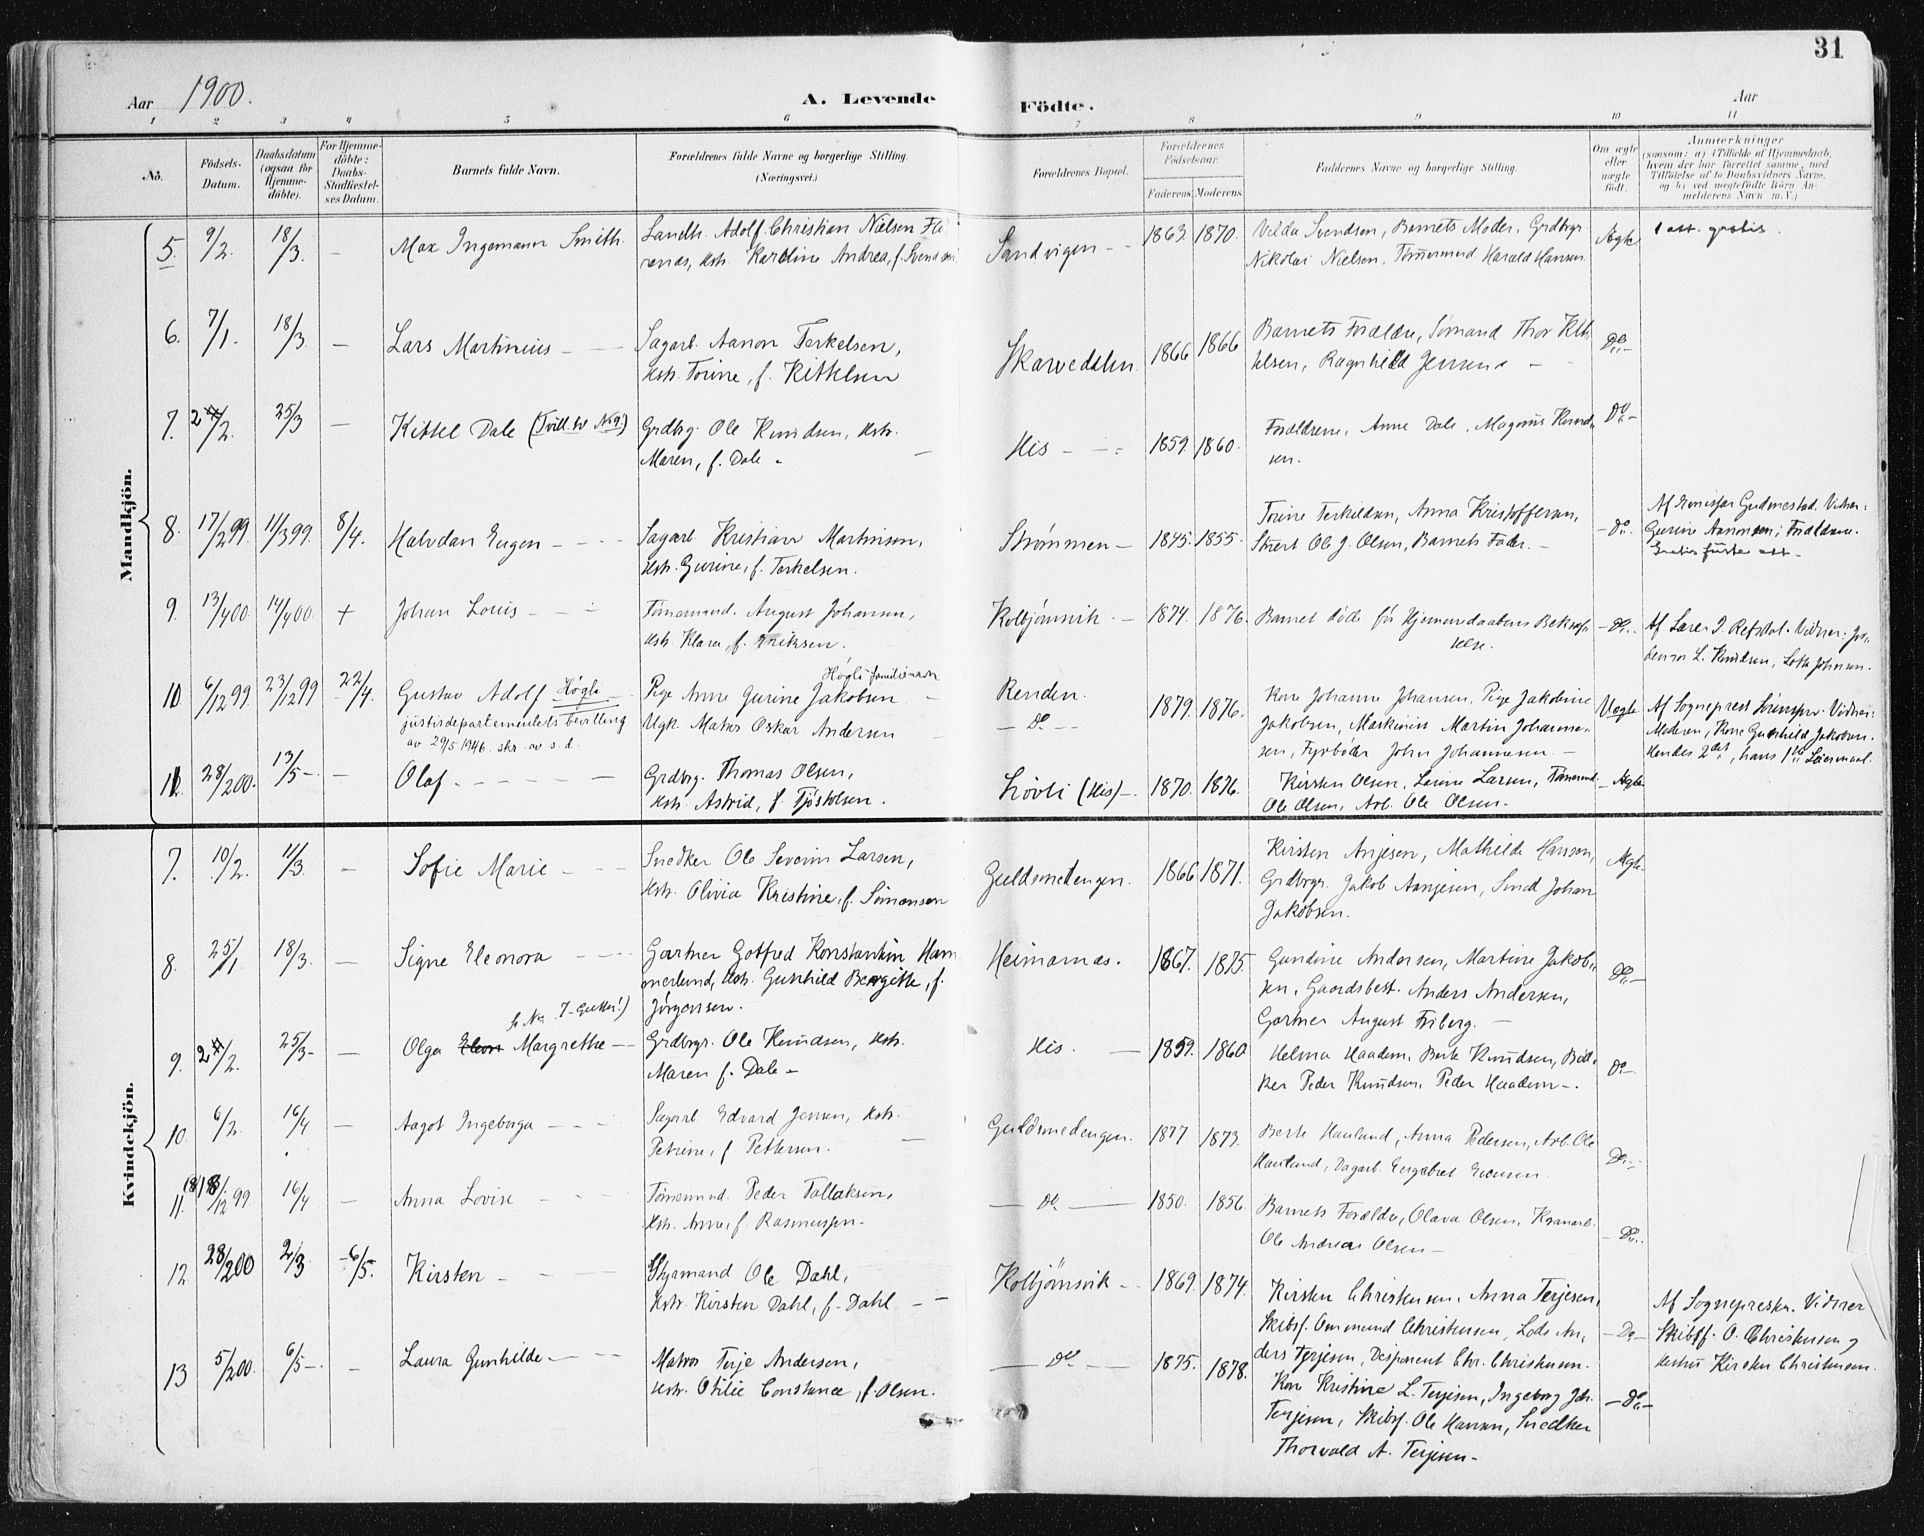 31
Aar 1900.
A. Levende Födte.
Aar
1 2 3 4 5 6 7 8 9 10 11
No.
Födsels-Datum.
Daabsdatum (ogsaa for Hjemmedöbte).
For Hjemmedöbte: Daabs-Stadfæstelses Datum.
Barnets fulde Navn.
Forældrenes fulde Navne og borgerlige Stilling. (Næringsvei.)
Forældrenes Bopæl.
Forældrenes Födselsaar.
Faderens. Moderens.
Faddernes Navne og borgerlige Stilling.
Om ægte eller uægte födt.
Anmærkninger (saasom: a) i Tilfælde af Hjemmedaab, hvem der har forrettet samme, med Tilföielse af to Daabsvidners Navne, og b) ved uægtefödte Börn Anmelderens Navn m. V.)
Mandkjön.
5. 9/2. 18/3. - Max Ingemann Smith
Landh. Adolf Christian Nielsen
Hstr. Karoline Andrea, f. Svendsen
Sandvigen - - 1863. 1870.
Vilda Svendsen, Barnets Moder, Grdbrgr.
Nikolai Nielsen, Tømermd. Harald Hansen
Ægte
1 att. gratis.
6. 7/1. 18/3. - Lars Martinius -
Sagarb. Aanon Terkelsen,
Hstr. Torine, f. Kittelsen
Skarvedalen 1866 1866
Barnets Forældre, Sømand Thor Kittelsen, Ragnhild Jensen -
Do -
7. 2 /2. 25/3 - Kittel Dale (Tvill. til No 9.)
Grdbrg. Ole Knudsen, Hstr.
Maren, f. Dale -
His - - 1859. 1860.
Forældrene, Anne Dale, Magnus Knudsen.
Do -
8. 17/2 99 11/3 99. 8/4. Halvdan Eugen -
Sagarb. Kristian Martinsen,
Hstr. Gurine, f. Terkelsen.
Strømmen - 1845. 1855.
Torine Terkildsen, Anna Kristoffersen,
Ole J. Olsen, Barnets Fader. -
- Do -
Gudmestad. Vidner:
Gurine Aanonsen, Forældrene.
Gratis første att -
9. 13/4 00 14/4 00 + Johan Louis -
Tømermand. August Johansen,
Hstr. Klara, f. Eriksen.
Kolbjørnsvik - 1874. 1876.
Barnet døde før Hjemmedaabens Bekræftelse.
- Do -
Af Lærer J. Refsdal. Vidner:
L. Knudsen, Lotte Johnsen.
10 6/12 99 23/12 99 22/4. Gustav Adolf Høgli
justisdepartementets bevilling
av 29/5 1946. skr. av s. d.
Høgli familienavn
Pige Anne Gurine Jakobsen
Ugk. Matros Oskar Andersen
Renden.
- Do -
1879. 1876.
Kone Johanne Johansen, Pige Jakobine
Jakobsen, Maskinist Martin Johannesen, Fyrbøder John Johannesen -
Uægte
Af Sogneprest Vidner:
Moderen, Kone Gunhild Jakobsen.
Hendes 2det, hans 1ste Leiermaal.
11 28/2 00. 13/5 - - Olaf -
Grdbrg. Thomas Olsen,
Hstr. Astrid, f. Tjöstolsen.
Løvli (His) - 1870. 1876.
Kirsten Olsen, Lenine Larsen, Tømermd.
Ole Olsen, Arb. Ole Olsen -
- Ægte
Kvindekjön.
7. 10/2. 11/3. - Sofie Marie -
Snedker Ole Severin Larsen,
Hstr. Olivia Kristine, f. Simonsen
Guldsmedengen. 1866 1871.
Kirsten Anjesen, Mathilde Hansen,
Grdbrgr. Jakob Aanjesen, Smed Johan
Jakobsen.
Ægte
8. 25/1. 18/3. - Signe Eleonora -
Gartner Gotfred Konstantin Hammerlund, Hstr. Gunhild Bergitte, f.
Jørgensen.
Heimarnæs. 1867. 1875.
Gundine Andersen, Martine Jakobsen, Gaardsbest. Anders Andersen,
Gartner August Friberg. -
Do -
9. 2 /2. 25/3 - - Olga Margrethe -
(se No 7 - Gutter!)
Grdbrgr. Ole Knudsen, Hstr.
Maren f. Dale -
His. - 1859. 1860
Helma Haadem. Berte Knudsen, Bødker Peder Knudsen, Peder Haadem -
Do -
10. 6/2. 16/4 - Aagot Ingeborga -
Sagarb. Edvard Jensen, Hstr.
Petrine, f. Pettersen.
Guldsmedengen. 1877 1873.
Berte Hauland, Anna Pedersen, Arb. Ole
Hauland, Dagarb. Engebret Evensen.
Do -
11. 18/12 99. 16/4 - Anna Lovise
Tømermd. Peder Tallaksen,
Hstr. Anne, f. Rasmussen -
- Do - 1850. 1856.
Barnets Forældre, Olava Olsen, Kranarb.
Ole Andreas Olsen -
- Do -
12 28/2 00 2/3. 6/5. Kirsten -
Styrmand Ole Dahl,
Hstr. Kirsten Dahl, f. Dahl -
Kolbjørnsvik - 1869. 1874.
Kirsten Christensen, Anna Terjesen,
Skibsf. Ommund Christensen, Lods Anders Terjesen, Disponent Chr. Christensen.
- Do -
Af Sognepresten. Vidner
Skibsf. O. Christensen og
Hustru Kirsten Christensen.
13 5/2 00. 6/5 - - Laura Gunhilde -
Matros Terje Andersen,
Hstr. Otilie Constance, f. Olsen.
- Do - 1875. 1878.
Kone Kristine L. Terjesen, Ingeborg Joh.
Terjesen, Skibsf. Ole Hansen, Snedker
Thorvald A. Terjesen -
- Do -